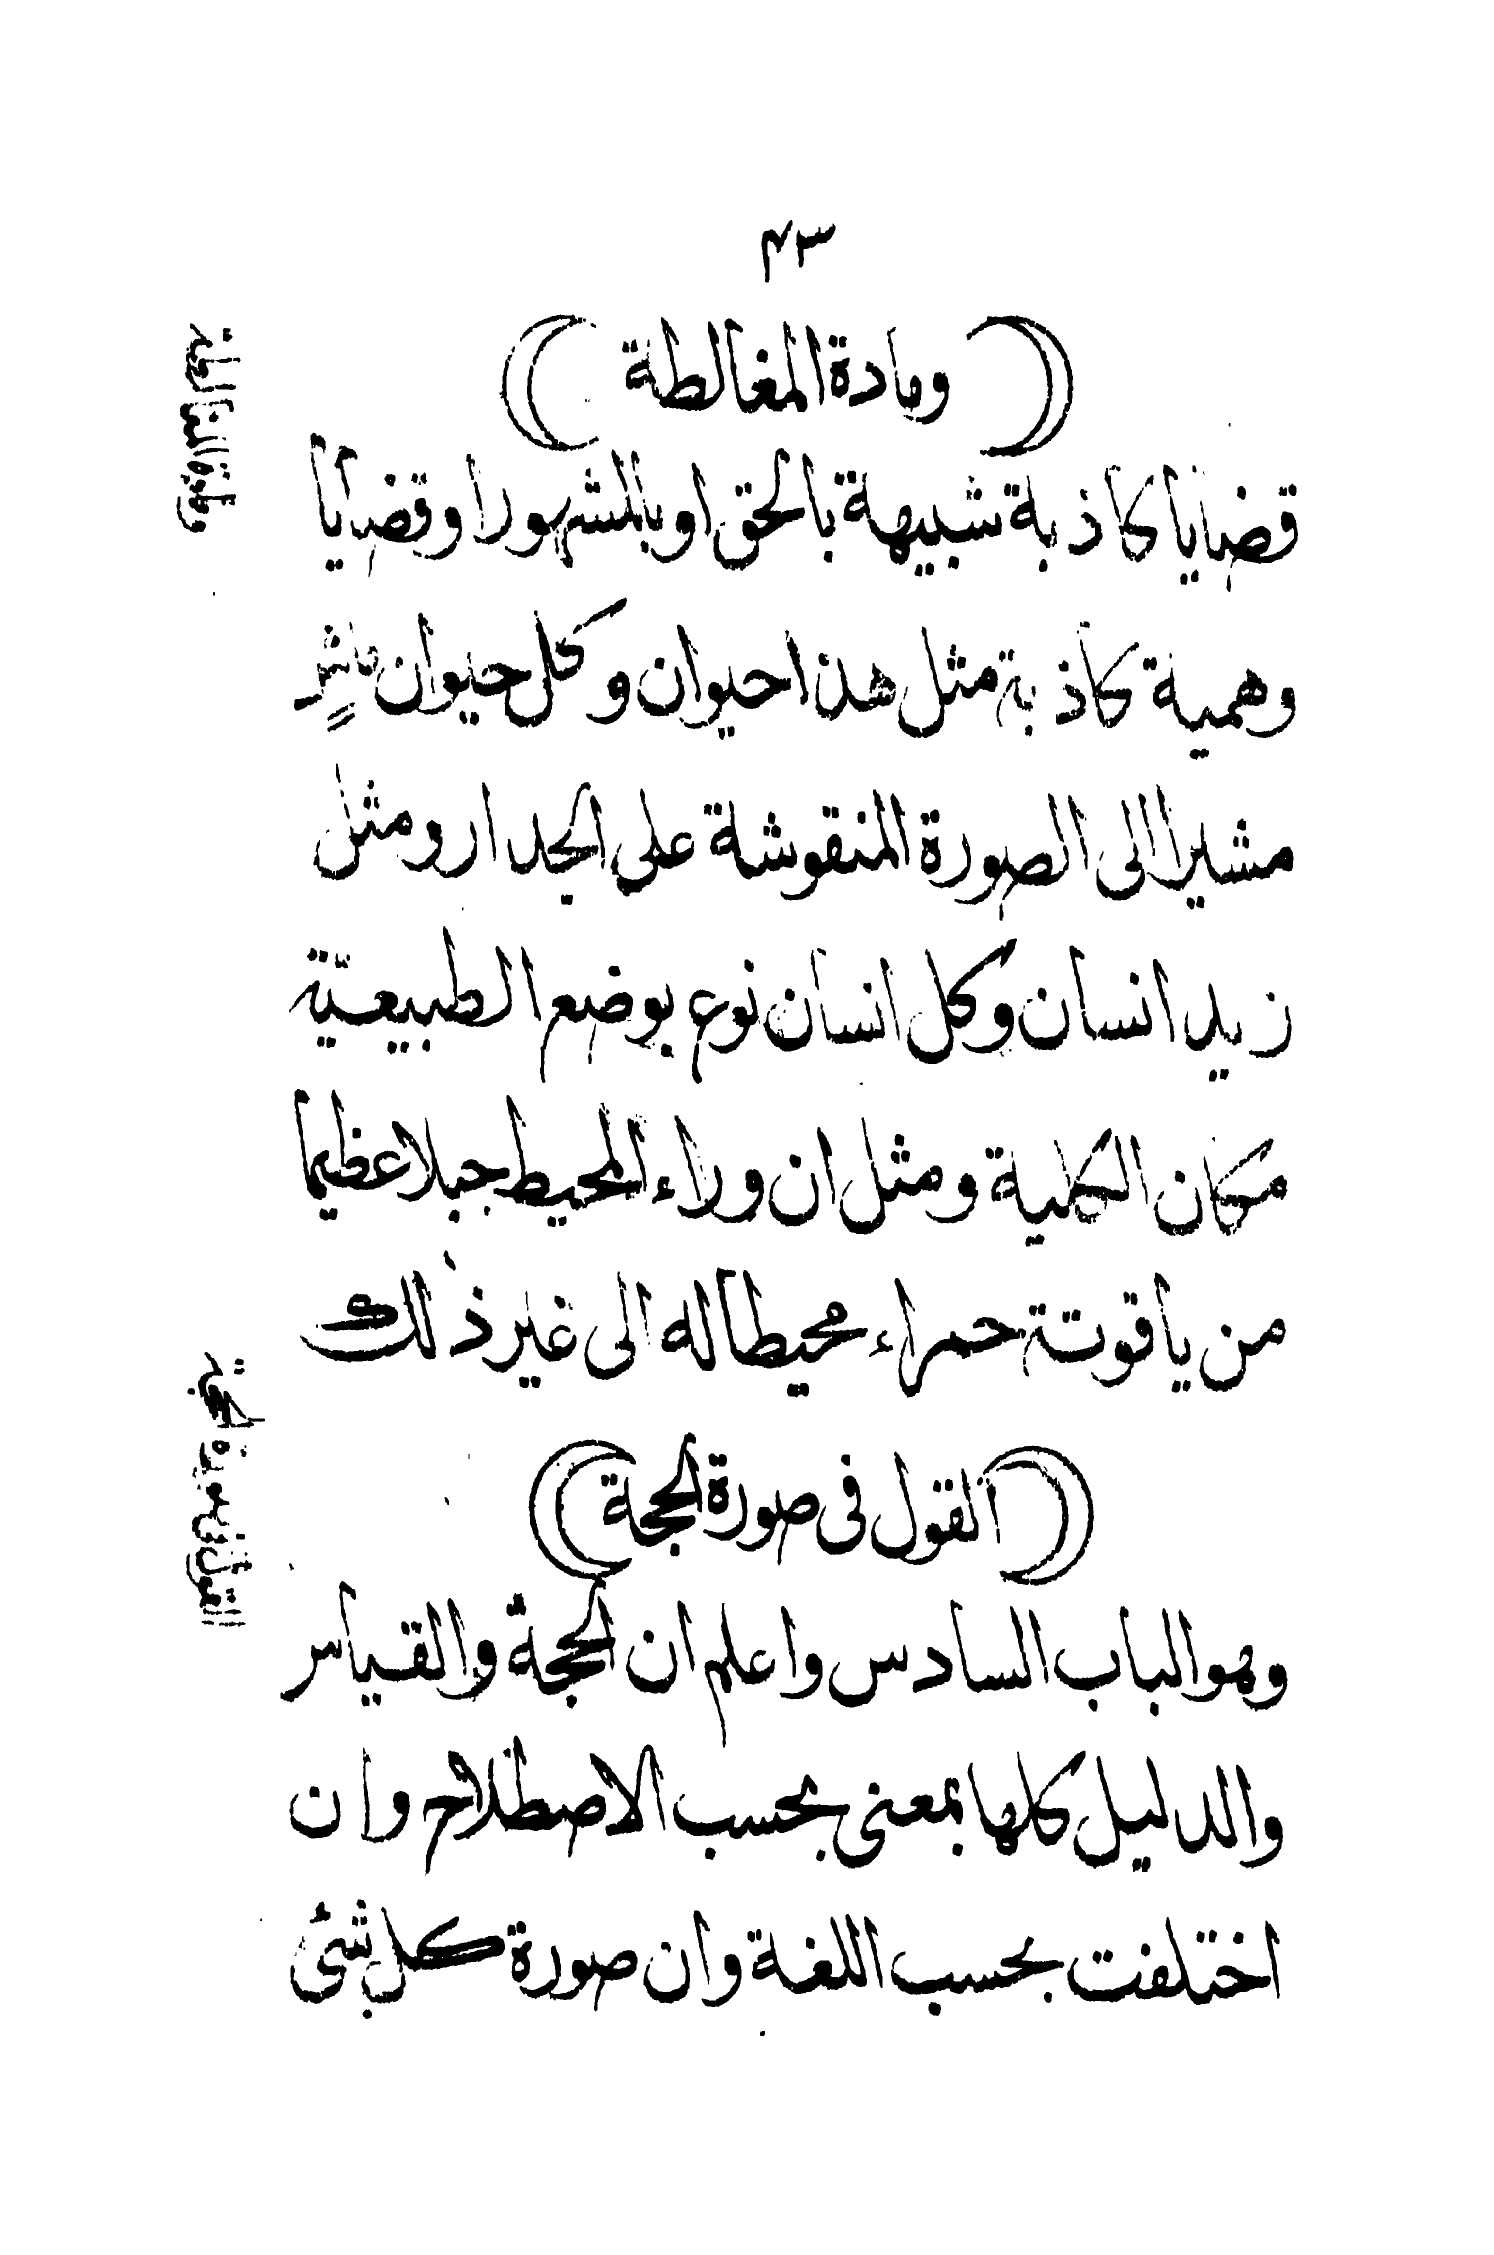 ٤٣
( ومادة المغالطة )
قضايا كاذبة شبيهة بالحق او بالمشهورا وقضايا
وهمية كاذبة مثل هذا حيوان وكل حيوان ماشٍ
مشيرا الى الصورة المنقوشة على الجدار ومثل
زيد انسان وكل انسان نوع بوضع الطبيعيّة
مكان الكلية ومثل ان وراء المحيط جبلا عظيما
من ياقوتة حمراء محيطا له الى غير ذلك
( القول فى صورة الحجة )
وهو الباب السادس واعلم ان الحجةَ والقياس
والدليل كلها بمعنى بحسب الاصطلاح وان
اختلفت بحسب اللغة وان صورة كل شئ
ومادة المغالطة
القول فى صورة الحجة